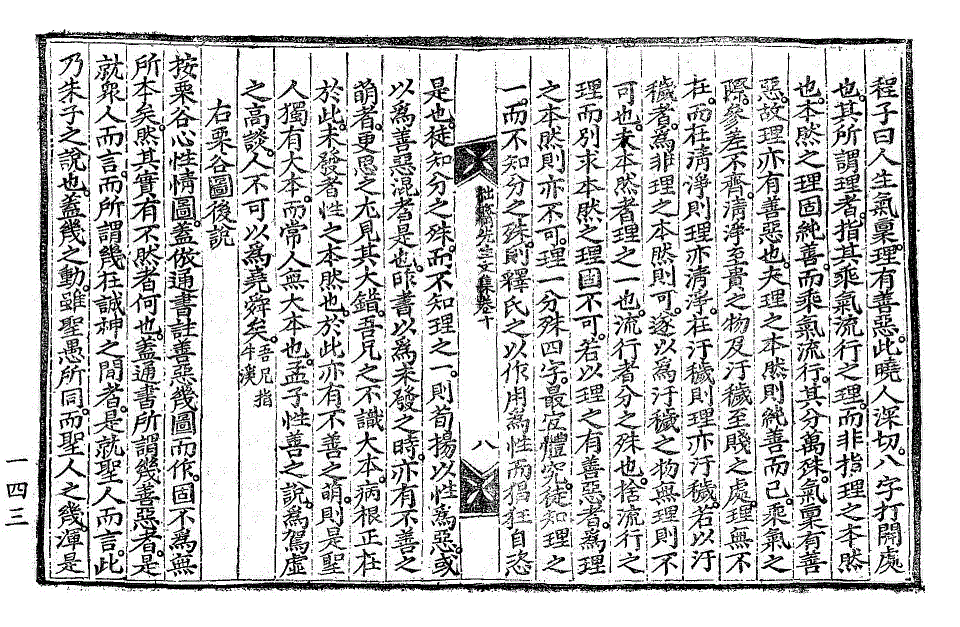 程子曰人生氣稟理有善惡此曉人深切八字打開處
也其所謂理者指其乘氣流行之理而非指理之本然
也本然之理固純善而乘氣流行其分萬殊氣稟有善
惡故理亦有善惡也夫理之本然則純善而已乘氣之
際參差不齊淸淨至貴之物及汙穢至賤之處理無不
在而在淸淨則理亦淸淨在汙穢則理亦汙穢若以汙
穢者爲非理之本然則可遂以爲汙穢之物無理則不
可也夫本然者理之一也流行者分之殊也捨流行之
理而別求本然之理固不可若以理之有善惡者爲理
之本然則亦不可理一分殊四字最宜體究徒知理之
一而不知分之殊則釋氏之以作用爲性而猖狂自恣
文集卷十
八
是也徒知分之殊而不知理之一則荀揚以性爲惡或
以爲善惡混者是也昨書以爲未發之時亦有不善之
萌者更思之尤見其大錯吾兄之不識大本病根正在
於此未發者性之本然也於此亦有不善之萌則是聖
人獨有大本而常人無大本也孟子性善之說爲駕虛
之高談人不可以爲堯舜矣吾兄指牛溪
右栗谷圖後說
按栗谷心性情圖蓋依通書註善惡幾圖而作固不爲無
所本矣然其實有不然者何也蓋通書所謂幾善惡者是
就衆人而言而所謂幾在誠神之間者是就聖人而言此
乃朱子之說也蓋幾之動雖聖愚所同而聖人之幾渾是
一四三